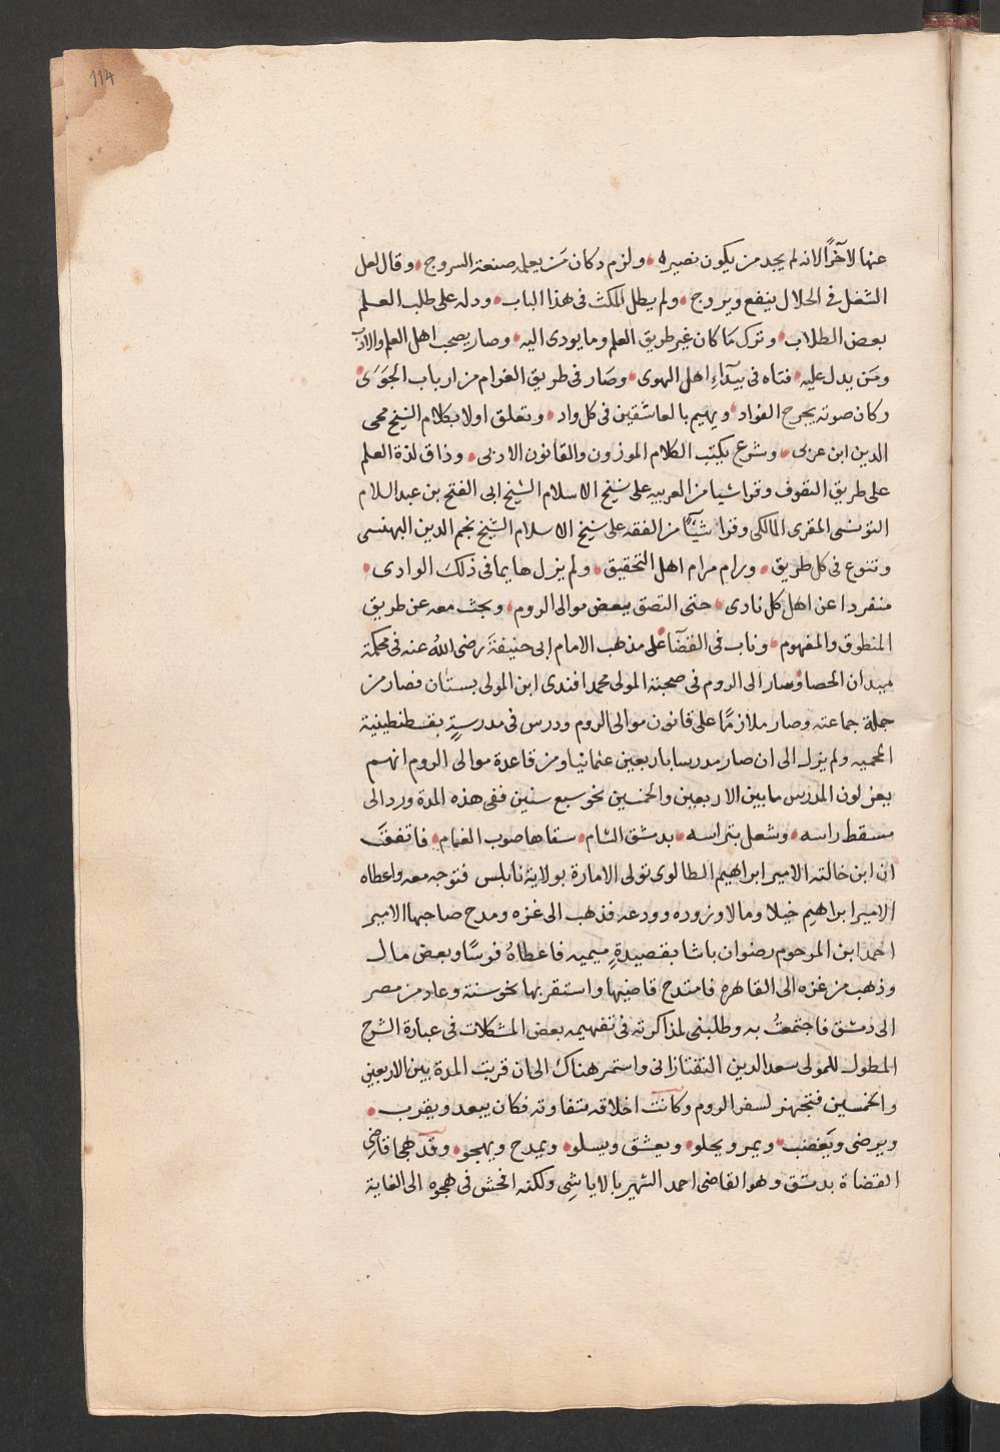 114
عنها لاآخرا لانه لم يجد من يكون نصيره ولزم دكان من يعلمه صنعة السروج وقال لعل
الشغل في الحلال ينفع ويروج ولم يطل المكث في هذا الباب ودله على طلب العلم
بعض الطلاب وترك ما كان غير طريق العلم وما يودى اليه وصار يصحب اهل العلم والادب
ومن يدل عليه فتاه في بيداء اهل الهوى وصار في طريق الغرام من ارباب الجوى
وكان صوته يجرح الفواد ويهيم بالعاشقين في كل واد وتعلق اولا بكلام الشيخ محى
الدين ابن عربى وشرع يكتب الكلام الموزون والقانون الادبى وذاق لذة العلم
على طريق التقوف وقرا شيا من العربيه على شيخ الاسلام الشيخ ابى الفتح بن عبد السلام
التونسى المقرى المالكى وقرا شيأ من الفقه على شيخ الاسلام الشيخ نجم الدين البهنسى
وتنوع في كل طريق ورام مرام اهل التحقيق ولم يزل هايما في ذلك الوادى
منفردا عن اهل كل نادى حتى التصق ببعض موالى الروم وبحث معه عن طريق
المنطوق والمفهوم وناب في القضآ على مذهب الامام ابى حنيفة رضى الله عنه في محكمة
ميدان الحصا وسار الى الروم في صحبة المولى محمد افندى ابن المولى بستان فصار من
جملة جماعته وصار ملازما على قانون موالى الروم ودرس في مدرسة بقسطنطينية
المحميه ولم يزل الى ان صار مدرسا باربعين عثمانيا ومن قاعدة موالى الروم انهم
يعزلون المدرس ما بين الاربعين والخمسين نحو سبع سنين ففى هذه المدة ورد الى
مسقط راسه وشعل بتراسه بدمشق الشام سقاها صوب الغمام فاتفق
ان ابن خالته الامير ابراهيم الطالوى تولى الامارة بولاية نابلس فتوجه معه واعطاه
الامير ابراهيم خيلا ومالا وزوده وودعه فذهب الى غزه ومدح صاحبها الامير
احمد ابن المرحوم رضوان باشا بقصيدة ميميه فاعطاه فرسا وبعض مال
وذهب من غزه الى القاهره فامتدح قاضيها واستقر بها نحو سنة وعاد من مصر
الى دمشق فاجتمعت به وطلبنى لمذاكرته في تفهيمه بعض المشكلات في عبارة الشرح
المطول للمولى سعد الدين التفتازانى واستمر هناك الى ان قربت المدة بين الاربعين
والخمسين فتجهز لسفر الروم وكانت اخلاقه متفاوته فكان يبعد ويقرب
ويرضى ويغضب ويمر ويحلو ويعشق ويسلو ويمدح ويهجو وقد هجا قاضى
القضاة بدمشق وهو القاضى احمد الشهير بالاياشى ولكنه افحش في هجوه الى الغاية